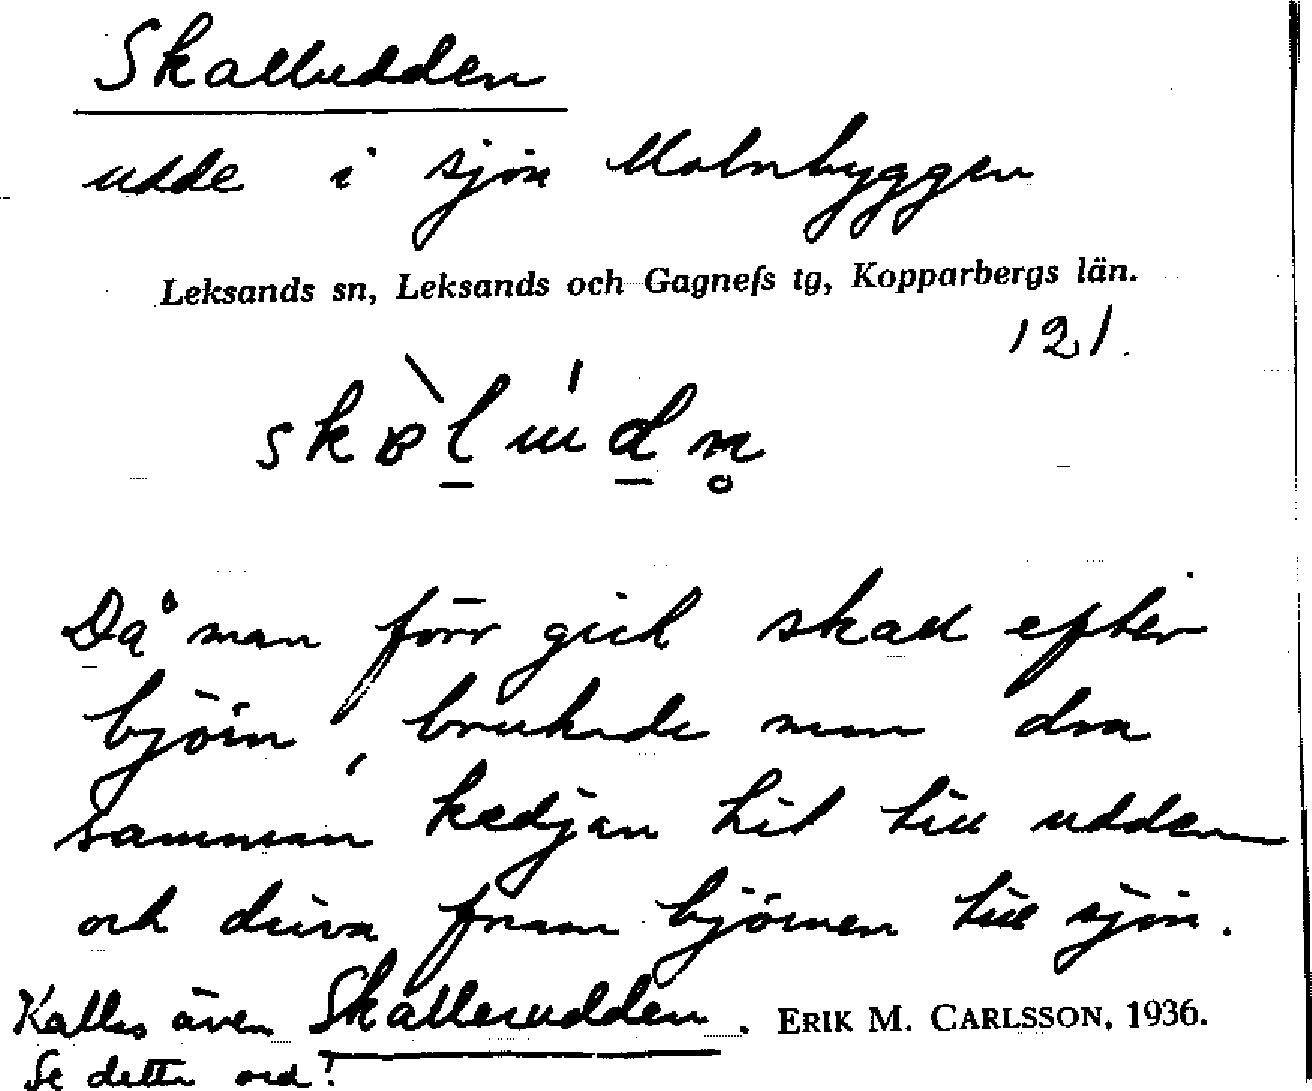 Skalludden
udde i sjön Molnbyggen
Leksands sn, Leksands och Gagnefs tg, Kopparbergs län.
121.
Då man förr gick skall efter
björn, brukade man dra
samman kedjan hit till udden
och driva fram björnen till sjön.
Kallas även Skallerudden. ERIK M. CARLSSON, 1936.
Se detta ord!